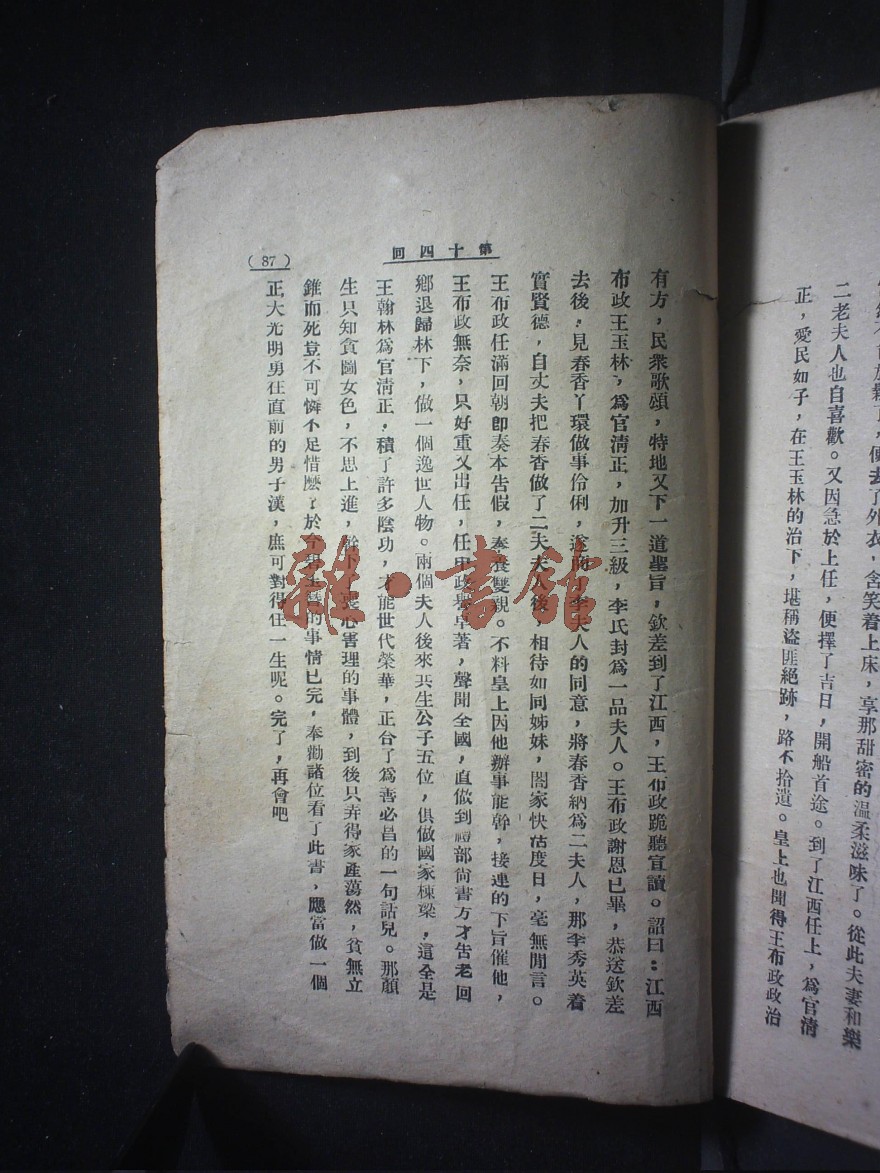 正，愛民如子，在王玉林的治下，堪稱盜匪絕跡，路不拾遺。皇上也聞得王布政政治
二老夫人也自喜歡。又因急於上任，便擇了吉日，開船首途。到了江西任上，爲官清
便去了外衣，含笑着上床，享那甜密的温柔滋味了。從此夫妻和樂
第十四回
(87)
有方，民衆歌頌，特地又下一道聖旨，欽差到了江西，王布政跪聽宣讀。詔曰：江西
布政王玉林，爲官清正，加升三級，李氏封爲一品夫人。王布政謝恩已畢，恭送欽差
去後，見春香丫環做事伶俐，遂商 李夫人的同意，將春香納爲二夫人，那李秀英着
實賢德，自丈夫把春香做了二夫夫人後，相待如同姊妹，閤家快活度日，毫無閒言。
王布政任滿回朝即奏本告假，奉養雙親。不料皇上因他辦事能幹，接連的下旨催他，
王布政無奈，只好重又出任，任中政 卓著，聲聞全國，直做到禮部尚書方才告老回
鄉退歸林下，做一個逸世人物。兩個夫人後來共生公子五位，俱做國家棟梁，這全是
王翰林爲官清正，積了許多陰功，才能世代榮華，正合了爲善必昌的一句話兒。那顏
生只知貪圖女色，不思上進，幹下 喪心害理的事體，到後只弄得家產蕩然，貧無立
錐而死豈不可憐不足惜麽？於 的事情已完，奉勸諸位看了此書，應當做一個
正大光明勇往直前的男子漢，庶可對得住一生呢。完了，再會吧
雜·書館